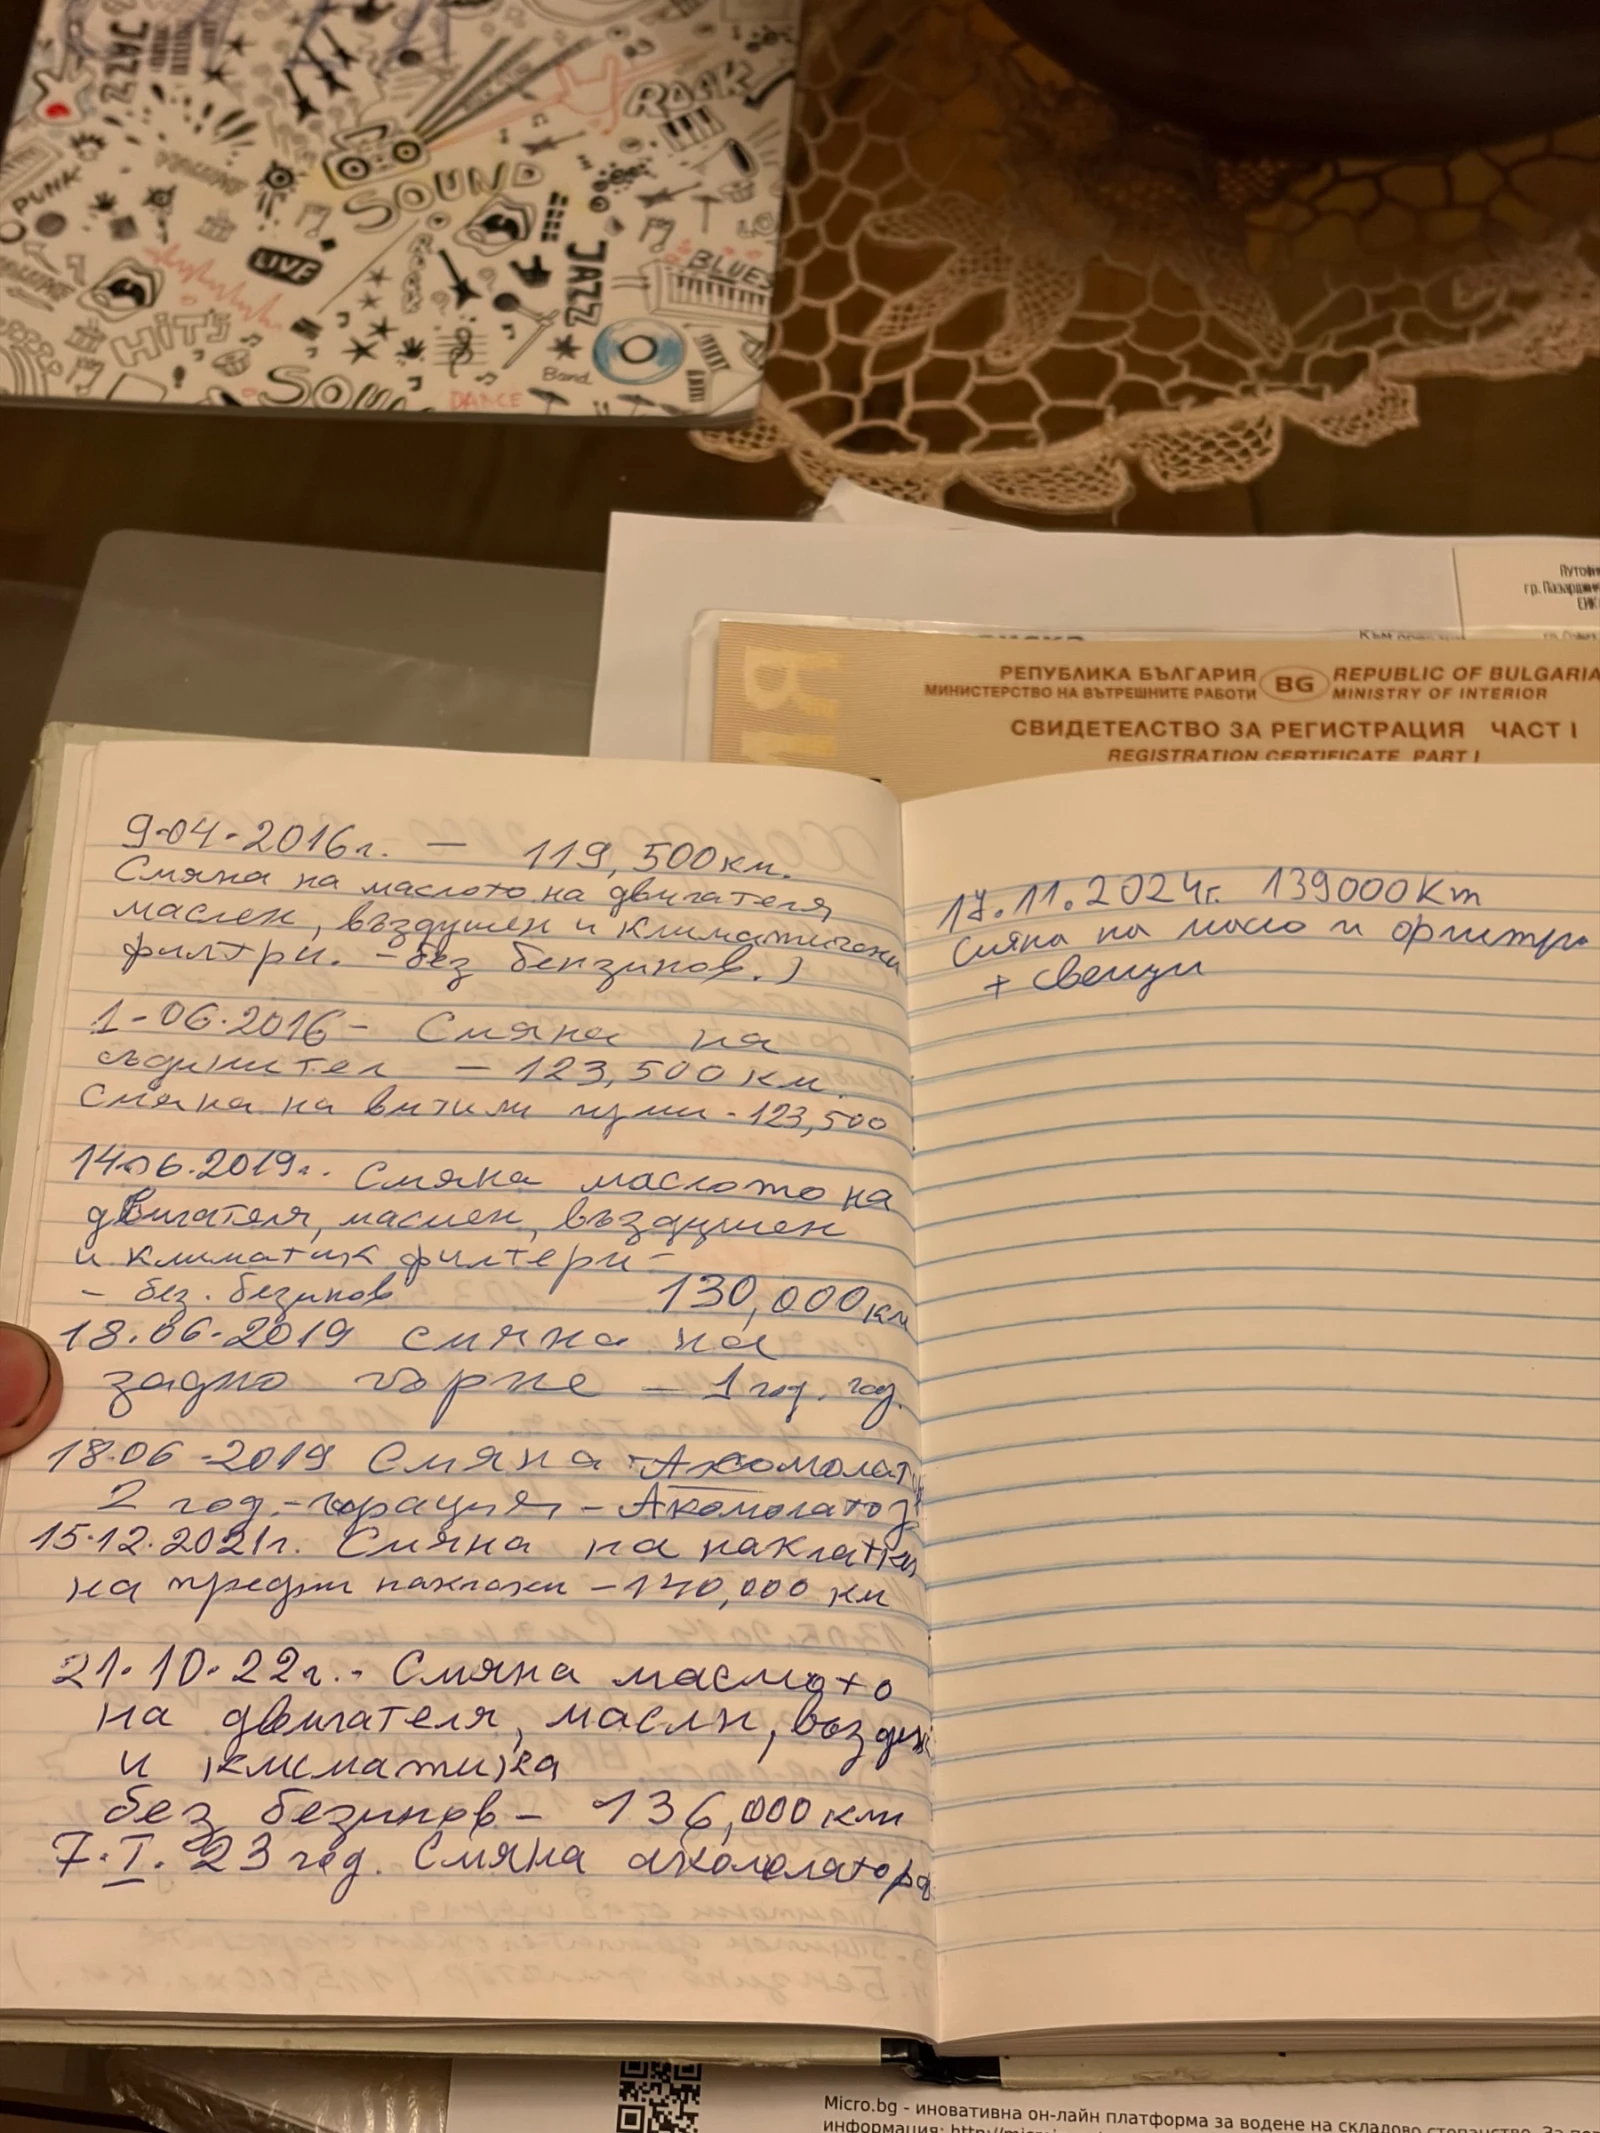 JAZZ
ROCK
PUNK
SOUND
LIVE
JAZZ
BLUES
HITS
Band
DANCE
гр. Пазардж
ЕИК
РЕПУБЛИКА БЪЛГАРИЯ BG REPUBLIC OF BULGARIA
МИНИСТЕРСТВО НА ВЪТРЕШНИТЕ РАБОТИ MINISTRY OF INTERIOR
СВИДЕТЕЛСТВО ЗА РЕГИСТРАЦИЯ ЧАСТ I
REGISTRATION CERTIFICATE PART I
9.04.2016г. — 119,500км.
Смяна на маслото на двигателя
маслен, въздушен и климатичен
филтри. - без бензинов.)
1-06.2016 - Смяна на
съединител - 123,500 км.
Смяна на 123,500
14.06.2019г. Смяна маслото на
двигателя, маслен, въздушен
и климатик филтери -
- без. безинов 130,000 км
18.06.2019 смяна на
задно гърне - 1 год. год.
18.06-2019 Смяна Акомолат
2 год.-
15.12.2021г. Смяна на накладки
на предни - 140,000 км
21.10.22г. - Смяна маслото
на двигателя, маслн,
и климатика
без безинов - 136,000 км
7.I.23 год. Смяна акомолатора
17.11.2024г. 139000km
Смяна на масло и
+ свещи
Micro.bg - иновативна он-лайн платформа за водене на складово стопанство. За
информация: